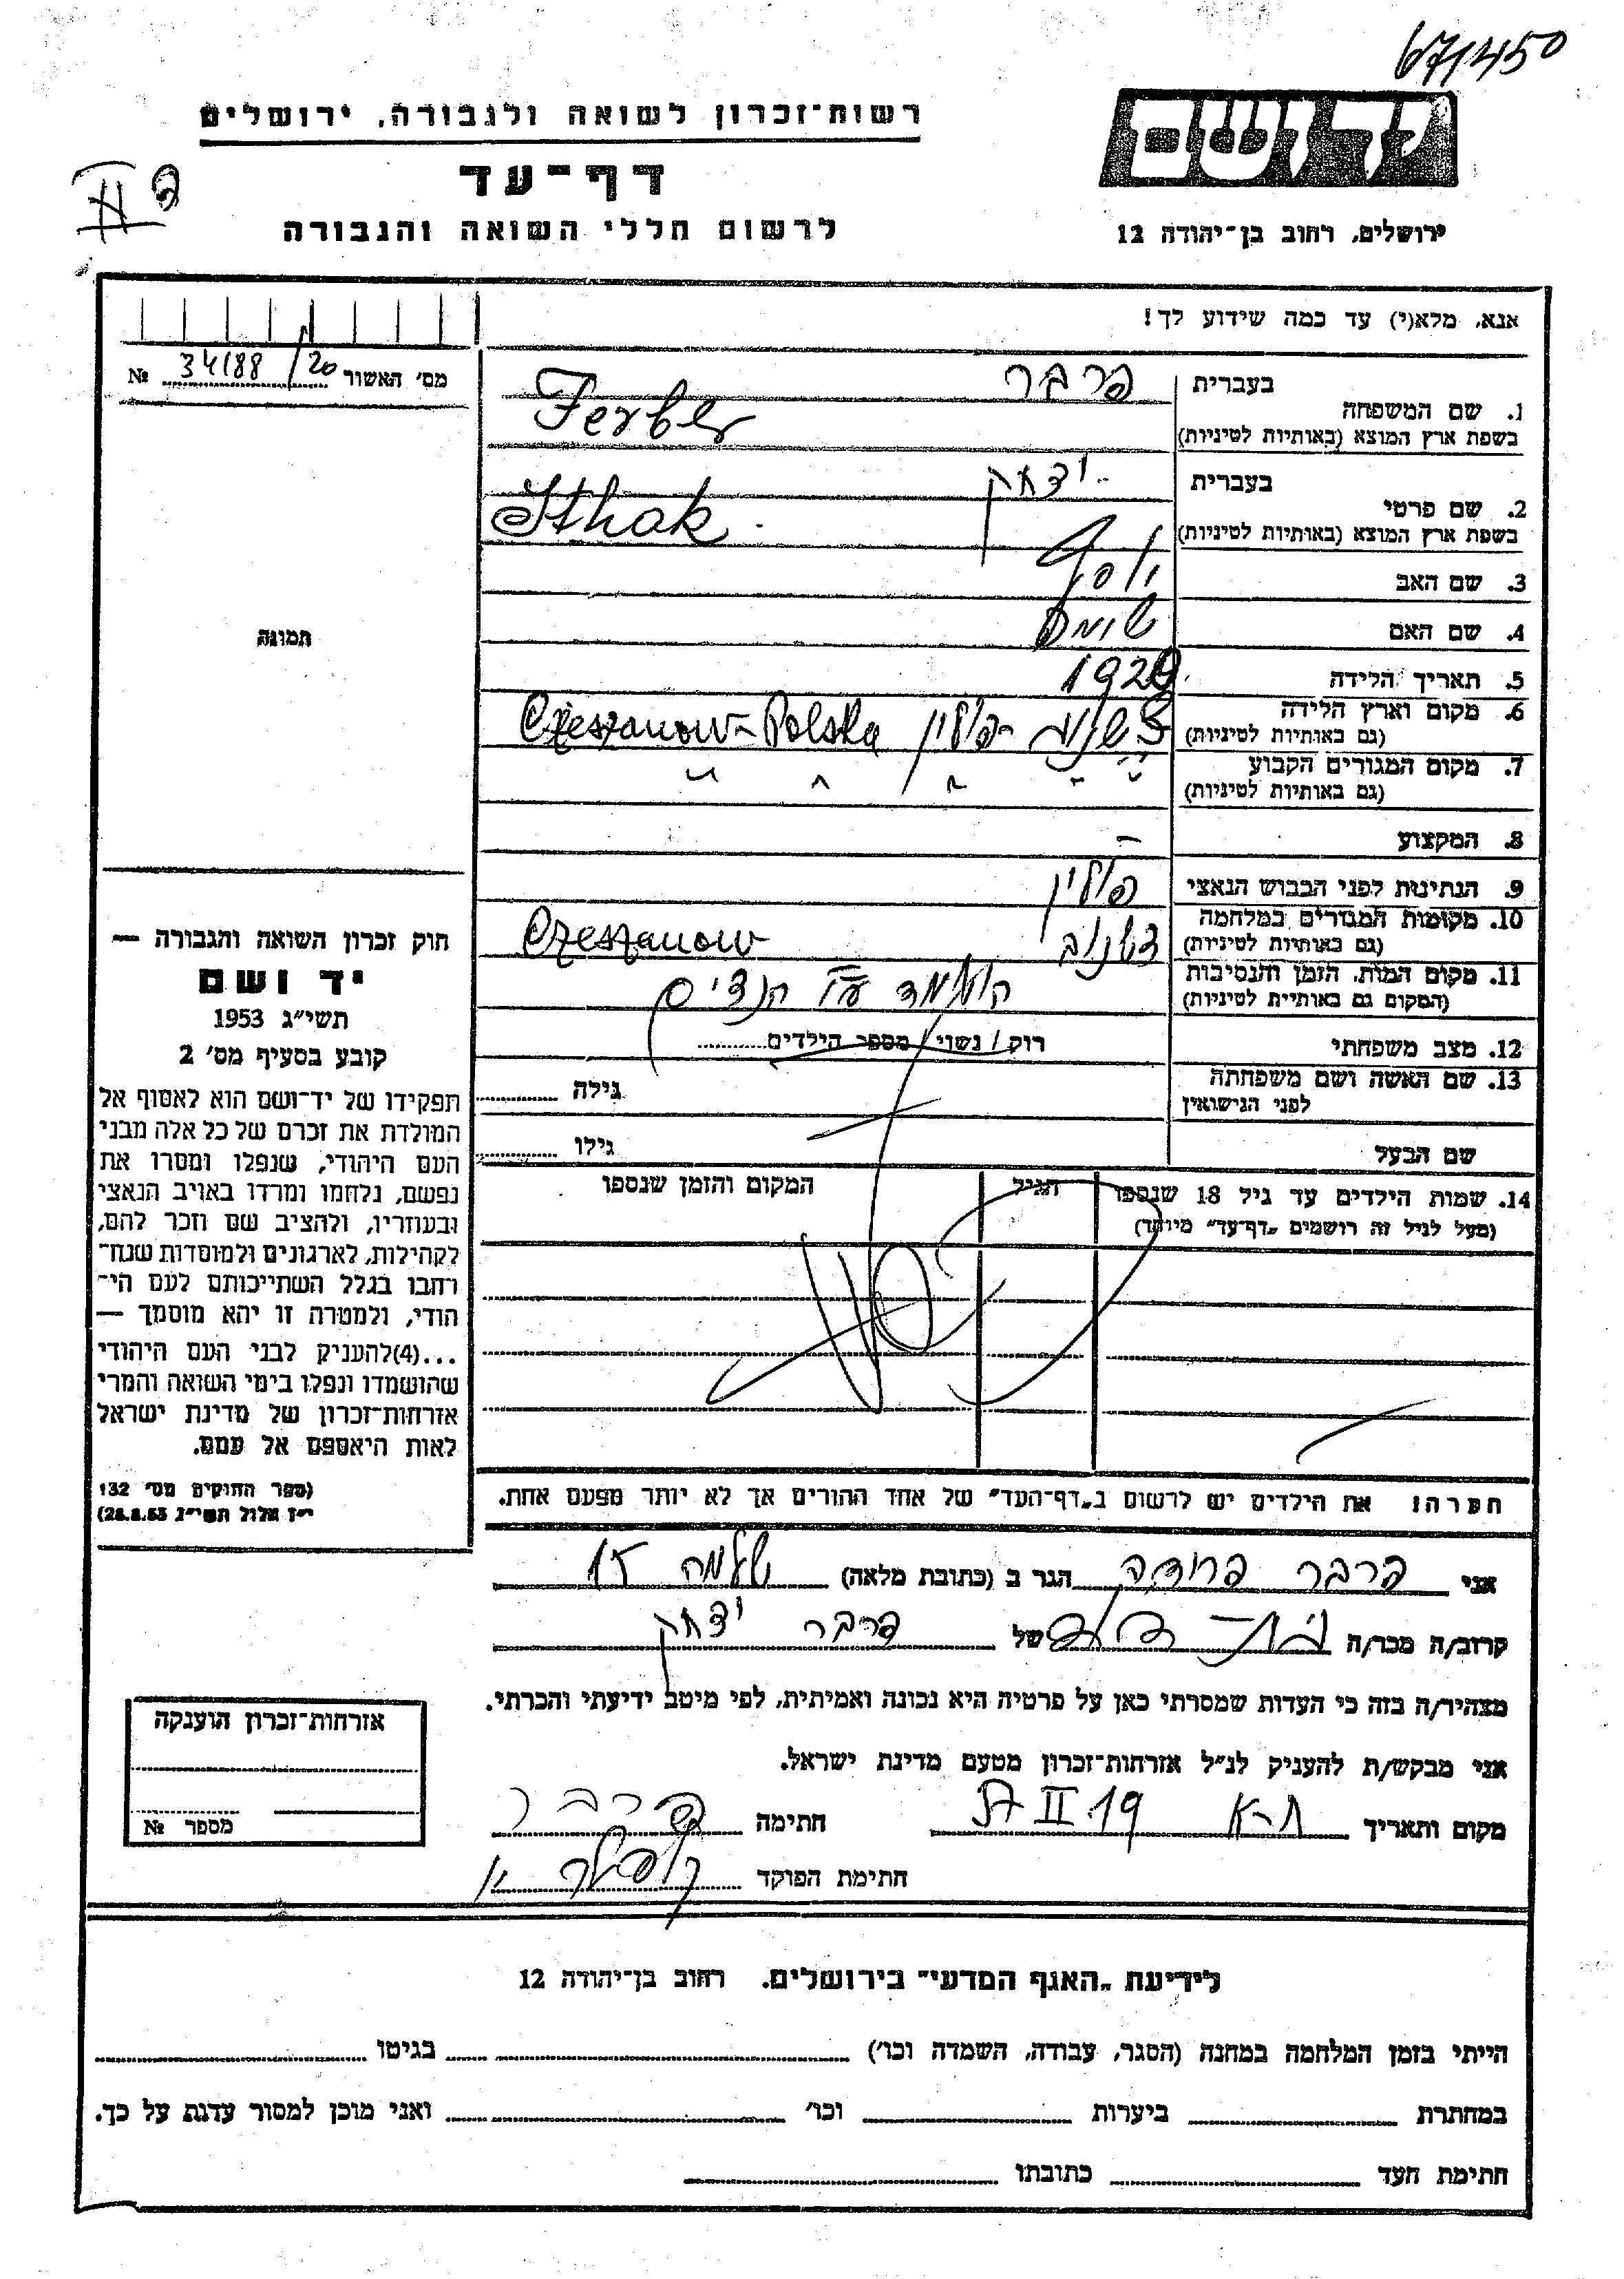 67/450
רשות־זכרון לשואה ולגבורה, ירושלים
יד ושם
דף־עד
לרשום חללי השואה והגבורה
ירושלים, רחוב בן־יהודה 12
אנא, מלא(י) עד כמה שידוע לך!
מס׳ האשור 34188/20 №
1. שם המשפחה
בעברית פרבר
בשפת ארץ המוצא (באותיות לטיניות) Ferber
2. שם פרטי
בעברית יצחק
בשפת ארץ המוצא (באותיות לטיניות) Ithak
3. שם האב יוסף
4. שם האם
5. תאריך הלידה 1920
6. מקום וארץ הלידה
(גם באותיות לטיניות) פולין Czeszanow-Polska
7. מקום המגורים הקבוע
(גם באותיות לטיניות) " " " "
8. המקצוע –
9. הנתינות לפני הכבוש הנאצי פולין
10. מקומות המגורים במלחמה
(גם באותיות לטיניות) צשנוב Czeszanow
11. מקום המות, הזמן והנסיבות
(המקום גם באותיות לטיניות) הושמד ע״י הנצים
12. מצב משפחתי רווק / נשוי / מספר הילדים
13. שם האשה ושם משפחתה
לפני הנישואין גילה
שם הבעל גילו
14. שמות הילדים עד גיל 18 שנספו הגיל המקום והזמן שנספו
(מעל לגיל זה רושמים „דף־עד״ מיוחד)
הערה: את הילדים יש לרשום ב„דף־העד״ של אחד ההורים אך לא יותר מפעם אחת.
תמונה
חוק זכרון השואה והגבורה —
יד ושם
תשי״ג 1953
קובע בסעיף מס׳ 2
תפקידו של יד־ושם הוא לאסוף אל
המולדת את זכרם של כל אלה מבני
העם היהודי, שנפלו ומסרו את
נפשם, נלחמו ומרדו באויב הנאצי
ובעוזריו, ולהציב שם וזכר להם,
לקהילות, לארגונים ולמוסדות שנח־
רבו בגלל השתייכותם לעם הי־
הודי, ולמטרה זו יהא מוסמך —
...(4) להעניק לבני העם היהודי
שהושמדו ונפלו בימי השואה והמרי
אזרחות־זכרון של מדינת ישראל
לאות היאספם אל עמם.
(ספר החוקים מס׳ 132
י״ז אלול תשי״ג 28.8.53)
אני פרבר הגר ב (כתובת מלאה) שלמה
קרוב/ה מכר/ה של פרבר יצחק
מצהיר/ה בזה כי העדות שמסרתי כאן על פרטיה היא נכונה ואמיתית, לפי מיטב ידיעתי והכרתי.
אני מבקש/ת להעניק לנ״ל אזרחות־זכרון מטעם מדינת ישראל.
מקום ותאריך ת-א 19 II חתימה פרבר
חתימת הפוקד
אזרחות־זכרון הוענקה
מספר №
לידיעת „האגף המדעי״ בירושלים, רחוב בן־יהודה 12
הייתי בזמן המלחמה במחנה (הסגר, עבודה, השמדה וכו׳) בגיטו
במחתרת ביערות וכו׳ ואני מוכן למסור עדות על כך.
חתימת העד כתובתו